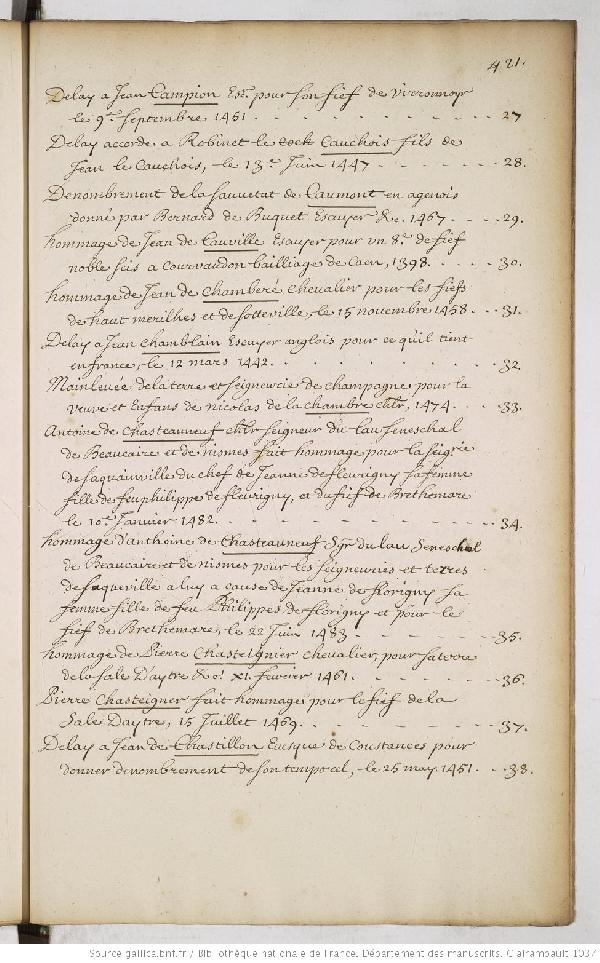 421.
Delay a Jean Campion Esc.r pour son fief de Viveronnop
le 9.e septembre 1461 . . . . . . . . 27
Delay accorde a Robinet le cock Cauchois fils de
Jean le Cauchois, le 13.e Juin 1447 . . . . . . 28.
Denombrement de la sauvetat de Caumont en agenois
donné par Bernard de Buquet Escuyer &c. 1467. . . . . 29.
hommage de Jean de Cauville Escuyer pour un 8.e de fief
noble seis a Courvaudon bailliage de Caen, 1398. . . . . 30.
hommage de Jean de Chamberé chevalier pour les fiefs
de haut merilhes et de sotteville, le 15 novembre 1458 . . 31.
Delay a Jean Chamblain Escuyer anglois pour ce qu'il tient
en france, le 12 mars 1442. . . . . . . . . 32.
Mainlevée de la terre et seigneurie de Champagne pour la
veuve et Enfans de nicolas de la Chambre chlr, 1474. . . . 33.
Antoine de Chasteauneuf chlr seigneur du lau seneschal
de Beaucaire et de nismes fait hommage pour la seig.rie
de saquainville du chef de Jeanne de fleurigny sa femme
fille de feu philippe de fleurigny, et du fief de Brethemare
le 10.e Janvier 1482. . . . . . . . . . 34.
hommage d'anthoine de Chasteauneuf Sgr du lau Seneschal
de Beaucaire et de nismes pour les seigneuries et terres
de saqueville a luy a cause de Jeanne de florigny sa
femme fille de feu Philippes de florigny et pour le
fief de Brethemare, le 22 Juin 1483 . . . . . . . 35.
hommage de Pierre Chasteignier chevalier, pour sa terre
de la sale Daytre &c. XI. fevrier 1461. . . . . . . 36.
Pierre Chasteigner fait hommage pour le fief de la
Sale Daytre, 15 Juillet 1469. . . . . . . . 37.
Delay a Jean de Chastillon Evesque de Coustances pour
donner denombrement de son temporel, le 25 may 1451. . . 38.
Source gallica.bnf.fr / Bibliothèque nationale de France. Département des manuscrits. Clairambault 1037